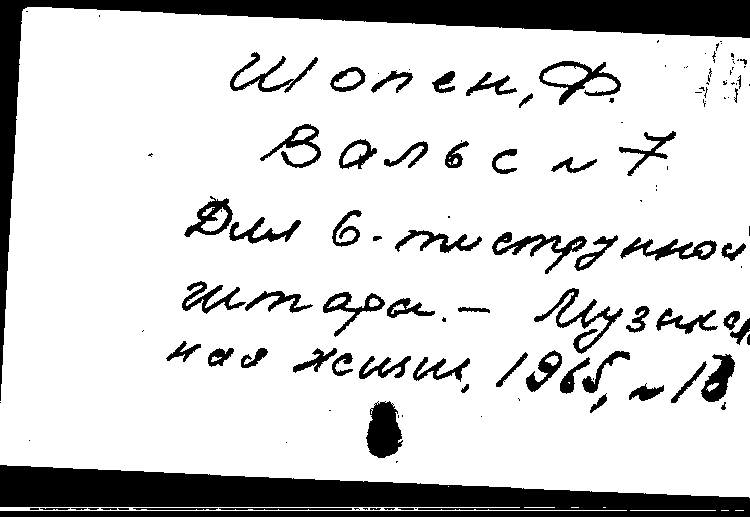 Шопен, Ф.
Вальс № 7
Для 6-тиструнной
гитары. — Музыкаль
ная жизнь, 1965, № 18.